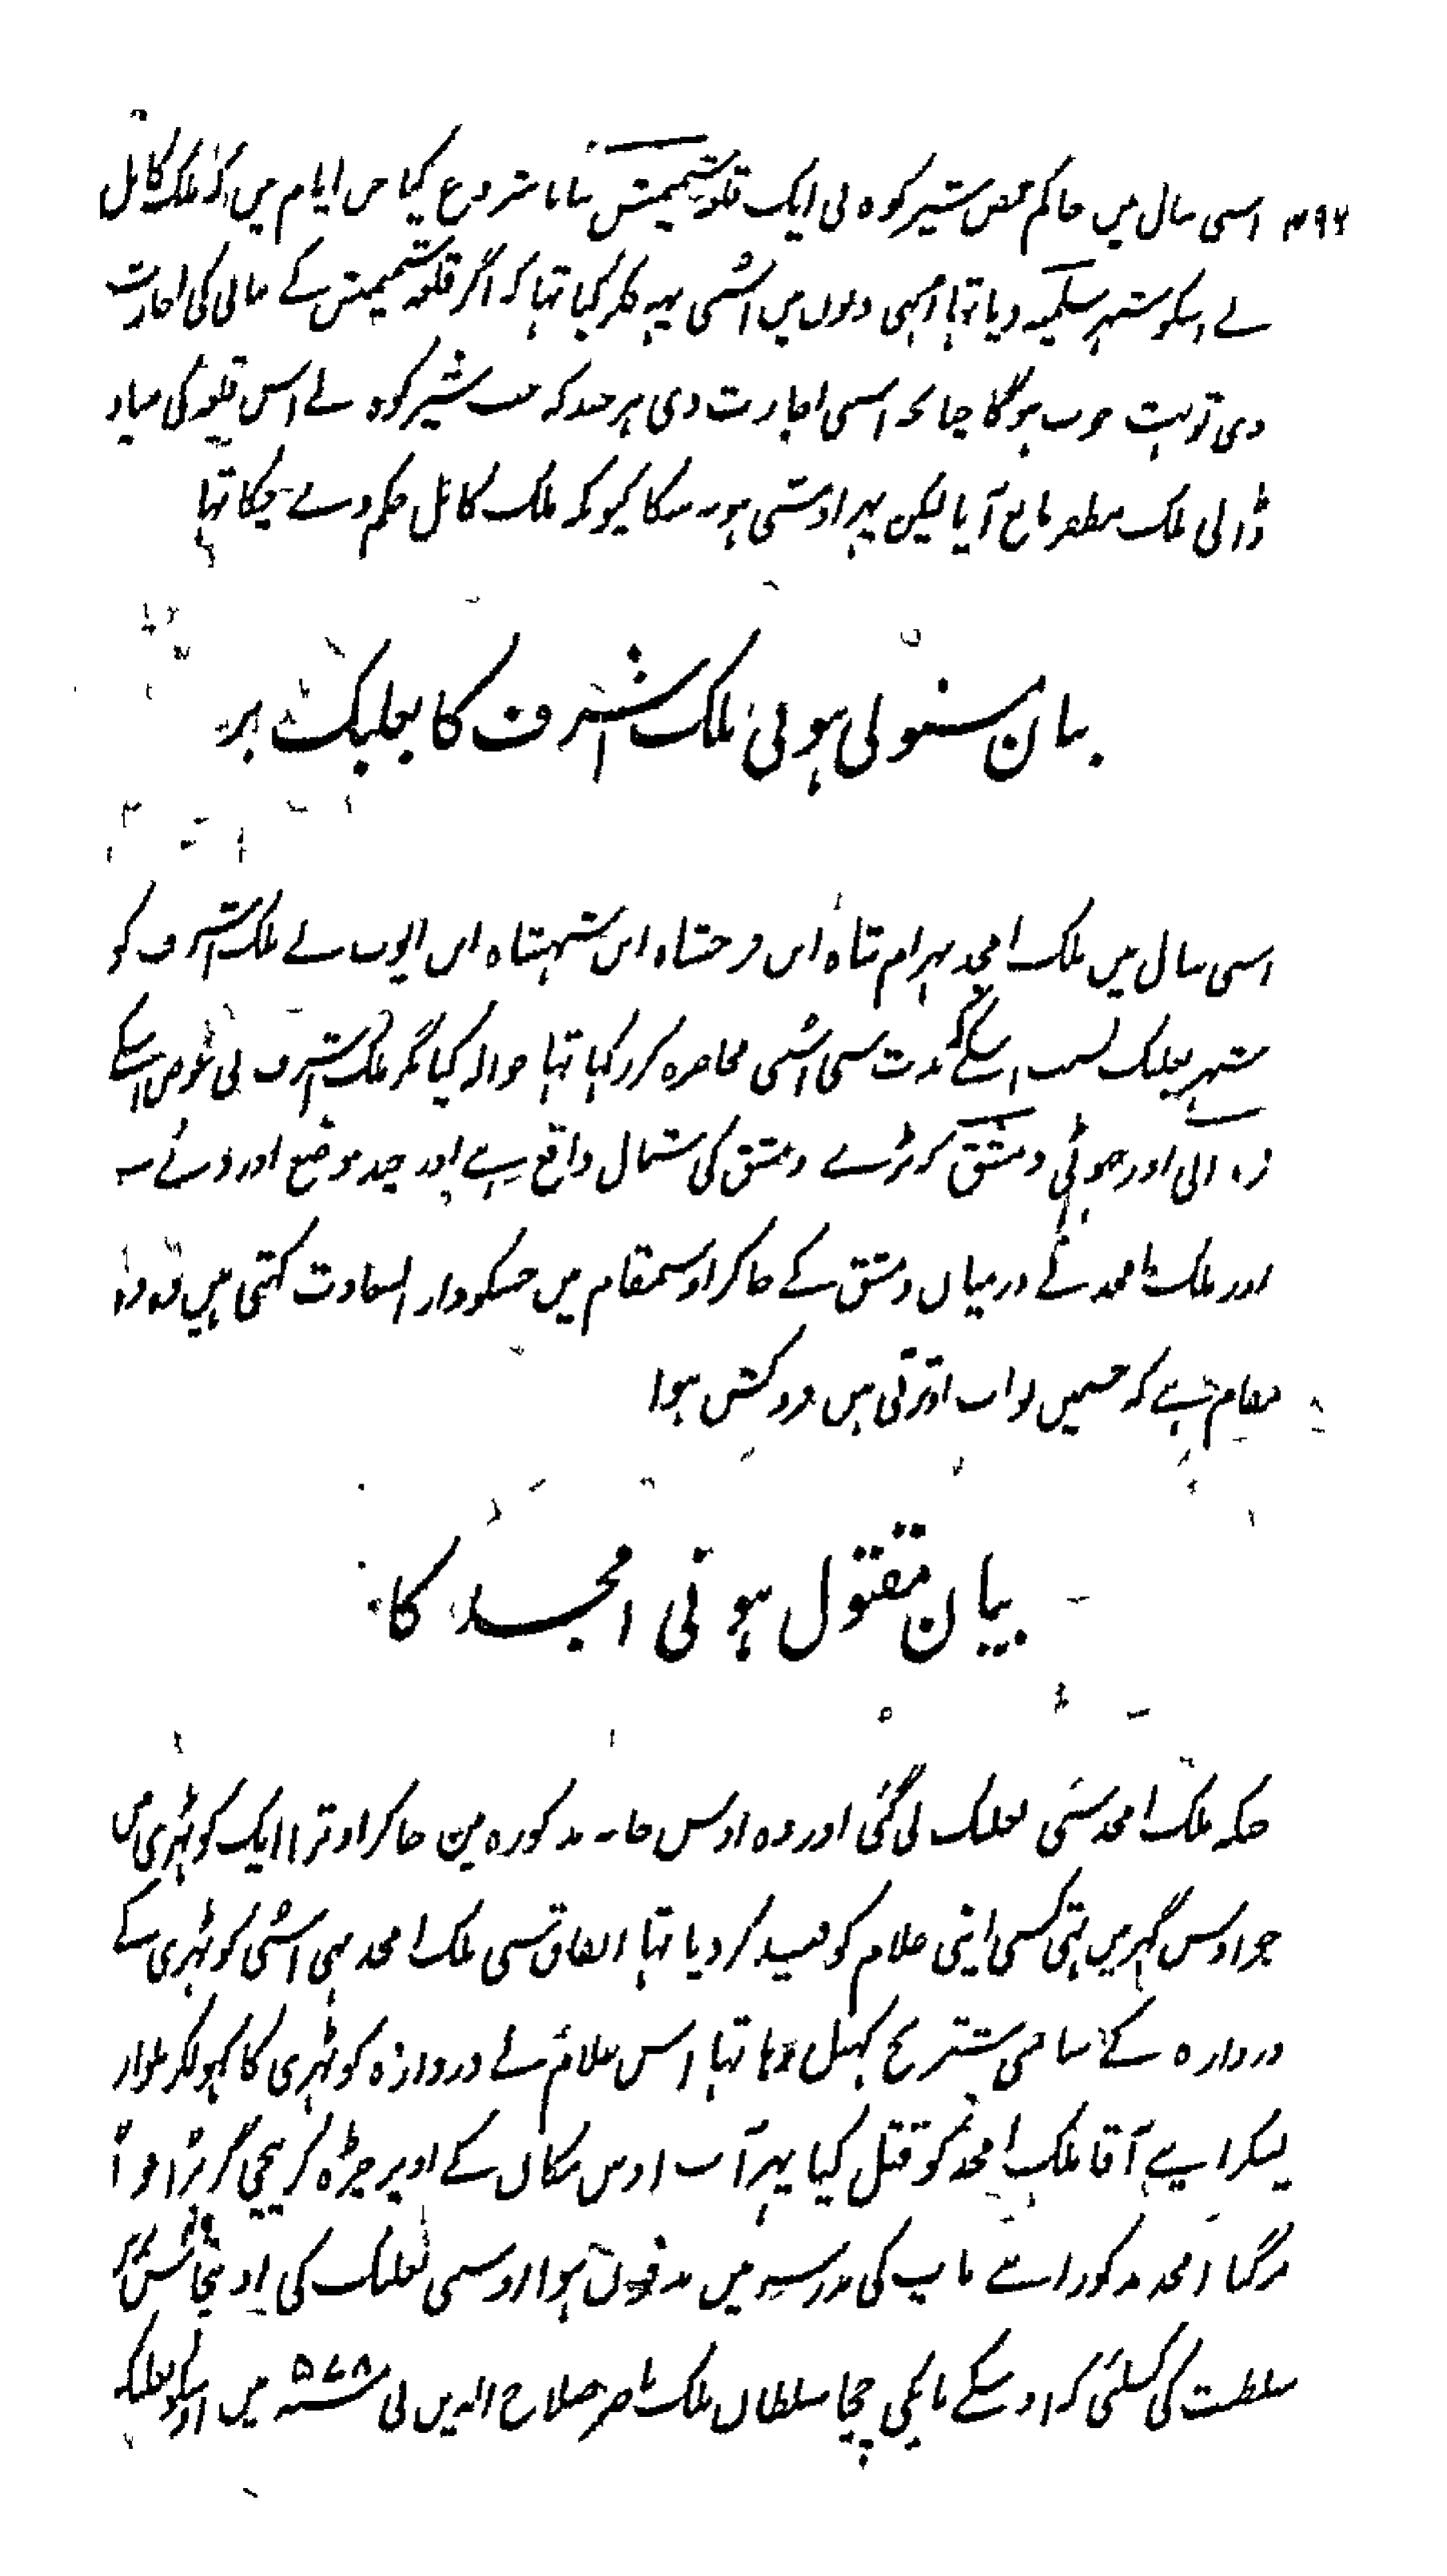 ۴۹۶ اسی سال میں حاکم حمص شیر کوہ نی ایک قلعہ شمیمش بنانا شروع کیا جن ایام میں کہ ملک کامل
نے اسکو شہر سلمیہ دیا تہا اونہی دنوں میں اسنی یہہ فکر کیا تہا کہ اگر قلعہ شمیمش کے بنانی کی اجازت
دی تو بہت خوب ہوگا چنانچہ اسی اجازت دی ہر چند کہ جب شیر کوہ نے اس قلعہ کی بنیاد
ڈالی ملک مظفر مانع آیا لیکن پہر اوسسی ہو نہ سکا کیونکہ ملک کامل حکم دے چکا تہا
بیان مستولی ہونی ملک اشرف کا بعلبک پر
اسی سال میں ملک امجد بہرام شاہ ابن فرخشاہ ابن شہنشاہ ابن ایوب نے ملک اشرف کو
شہر بعلبک بسبب اسکے کہ مدت سی اسنی محاصرہ کر رکہا تہا حوالہ کیا مگر ملک اشرف نی عوض اسکے
اور چہوٹی دمشق کی شمال واقع ہے اور چند موضع اور دئے
اور ملک امجد نے درمیان دمشق کے جاکر اوسمقام میں جسکو دار السعادت کہتی ہیں وہ وہ
مقام ہے کہ جسمیں نواب اوترتی ہیں فروکش ہوا
بیان مقتول ہونی امجد کا
جبکہ ملک امجد سی بعلبک لی گئی اور وہ اوس خانہ مذکورہ مین جاکر اوترا ایک کوٹہری میں
جو اوس گہر میں تہی کسی اپنی غلام کو قید کر دیا تہا اتفاق سی ملک امجد بہی اسی کوٹہری کے
دروازہ کے سامنی شطرنج کہیل رہا تہا اس غلام نے دروازہ کوٹہری کا کہولکر تلوار
لیکر اپنے آقا ملک امجد کو قتل کیا پہر آپ اوس مکان کے اوپر چڑہ کر نیچی گر پڑا اور
مرگیا امجد مذکور اپنے باپ کی مدرسہ میں مدفون ہوا اوسی بعلبک کی
سلطنت کی کہ اوسکے باپکی چچا سلطان ملک ناصر صلاح الدین نی ۵۷۸ سنہ میں اوسکو بعلبک